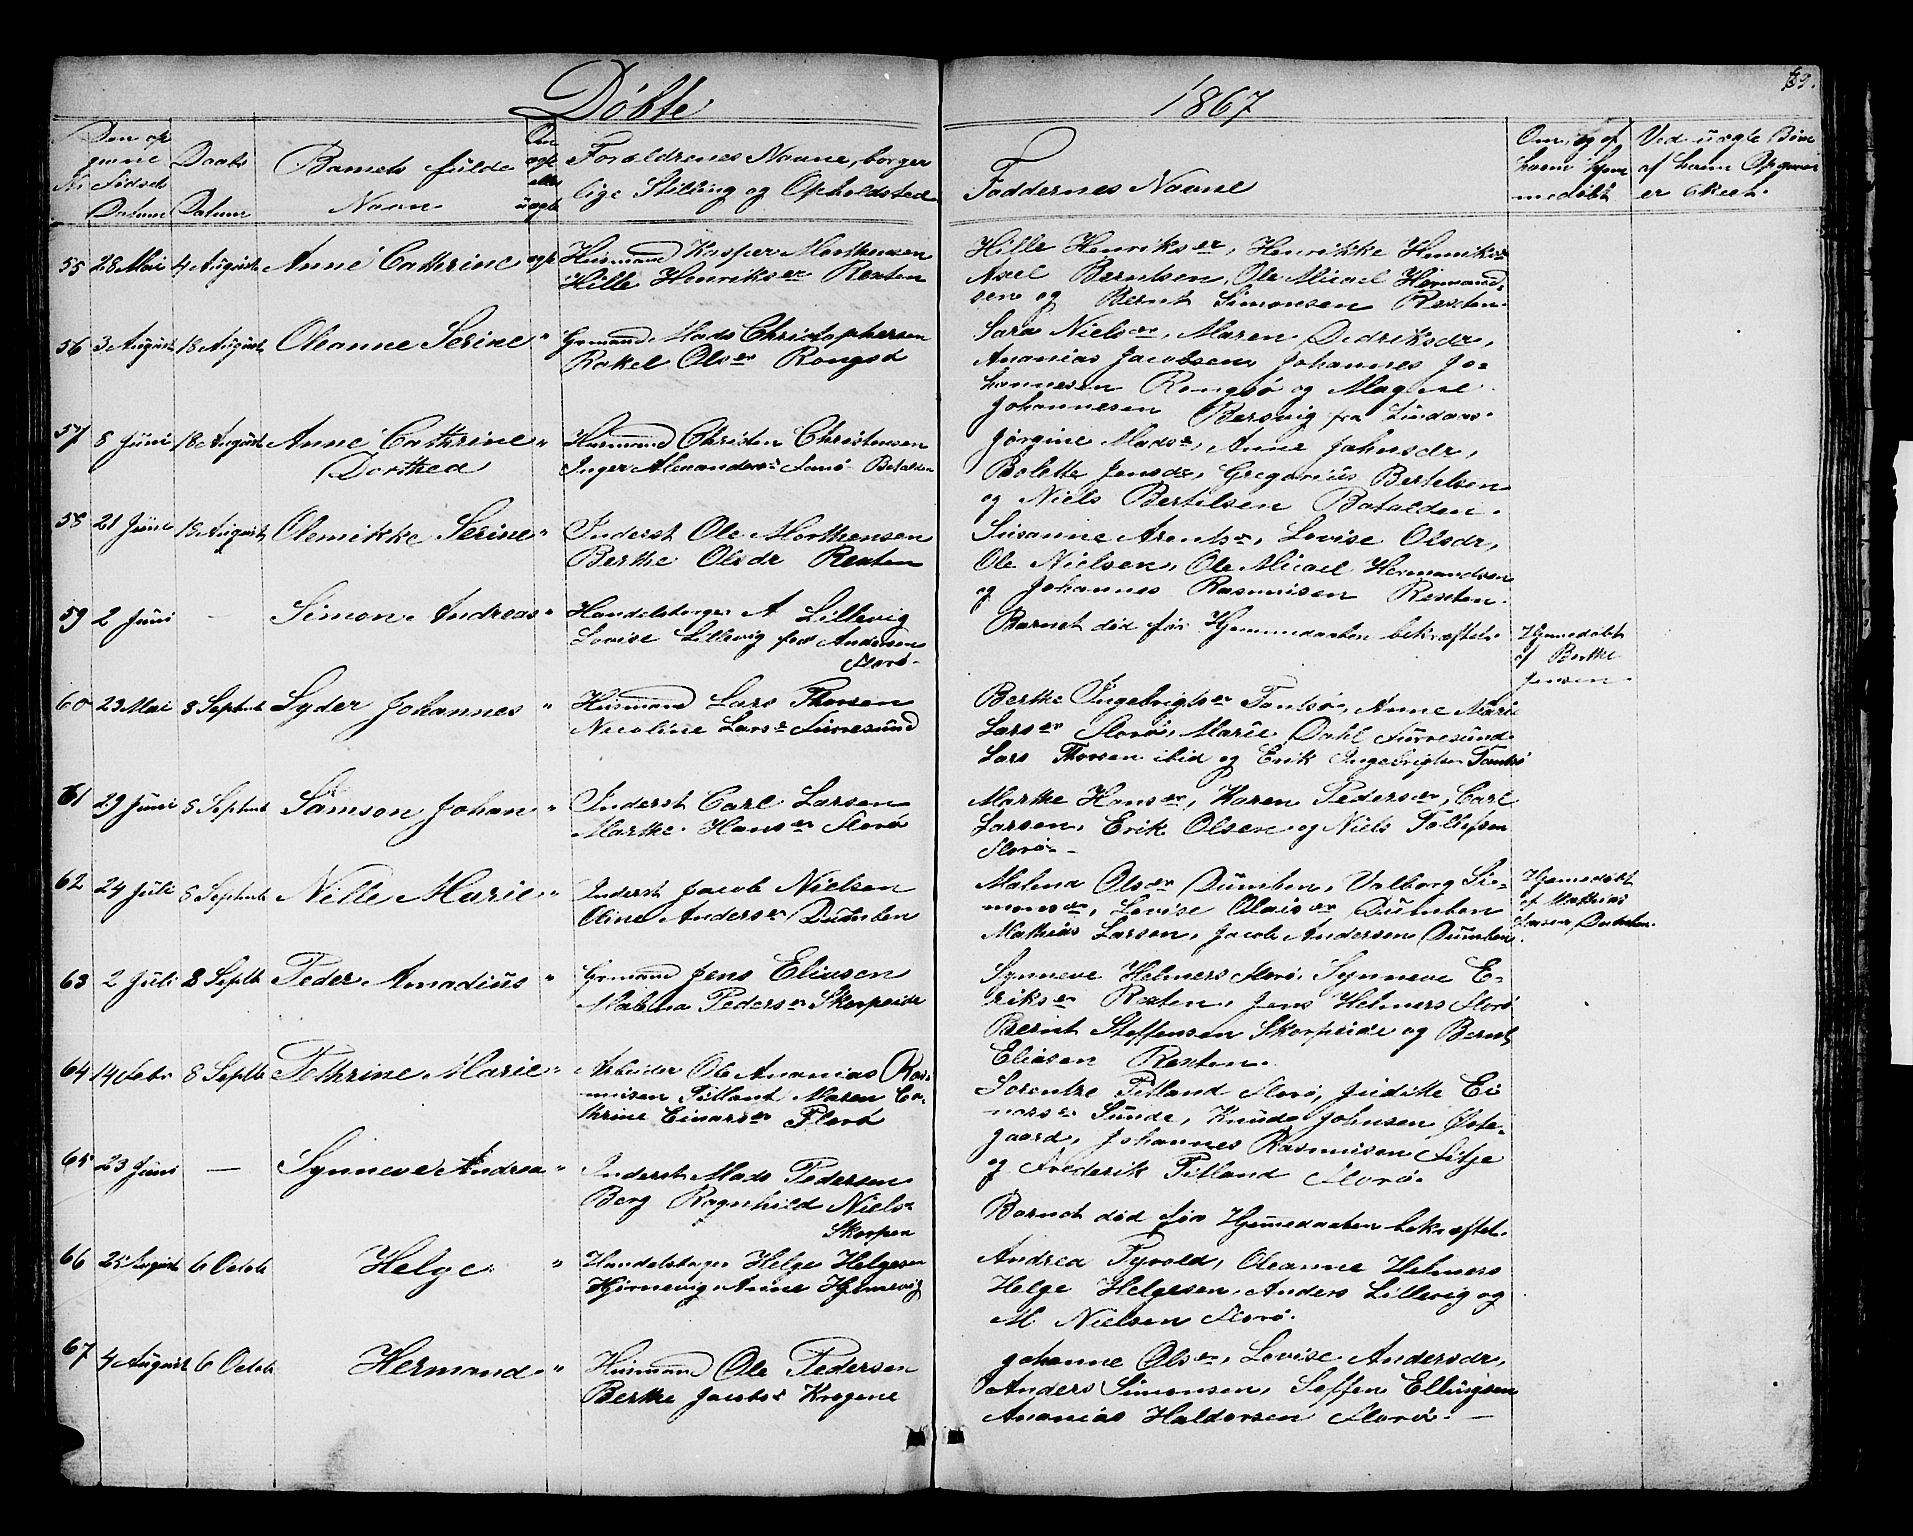 Döbte 1867
39.
Den op
givne
No Födsels
Datum
Daabs
Datum
Barnets fulde
Navn
Om
ægte
eller
uægte
Forældrenes Navne, borger
lige Stilling og Opholdsted
Faddernes Navne
Om og af
hvem hjem
medöbt
Ved uægte Börn
af hvem Opgaven
er skeet.
55 28 Mai 4 August Anne Cathrine ægte
Husmand Kasper Morthensen
Hille Henriksdr Rexten
Hille Henriksdr, Henrikke Henriksdr
Axel Berntsen, Ole Micael Hermand-
sen og Bernt Simonsen Rexten.
56 3 August 18 August Oleanne Serine "
Grmand Mads Christophersen
Rakel Olsdr Rongsö
Sara Nielsdr, Maren Didriksdr,
Ananias Jacobsen, Johannes Jo-
hannesen Rongsö og Magne
Johannesen Bersvig fra Lindaas.
57 8 Juni 18 August Anne Cathrine "
Dorthea
Husmand Christen Christensen
Inger Alexandersdr Batalden
Jörgine Madsdr, Anne Johnsdr,
Bolette Jensdr, Gregorius Bertelsen
og Niels Bertelsen Batalden.
58 21 Juni 18 August Olemikke Serine "
Inderst Ole Morthensen
Berthe Olsdr Rexten
Susanne Arentsdr, Lovise Olsdr,
Ole Nielsen, Ole Micael Hermandsen
og Johannes Rasmusen Rexten.
59 2 Juni — Simon Andreas "
Handelsborger A Lillevig
Lovise Lillevig föd Andersen
Florö.
Barnet död för Hjemmedaaben bekræftet.
Hjemedöbt
af Berthe
Jensen.
60 23 Mai 8 Septemb Syder Johannes "
Husmand Lars Thorsen
Nicoline Larsdr Furresund
Berthe Ingebrigtsdr Tansö, Anne Marie
Larsdr Florö, Marie Dahl Furresund
Lars Thorsen ibid og Erik Ingebrigtsen Tansö
61 29 Juni 8 Septemb Samson Johan "
Inderst Carl Larsen
Marthe Hansdr Florö
Marthe Hansdr, Karen Pedersdr, Carl
Larsen, Erik Olsen og Niels Tollefsen
Florö.
62 24 Juli 8 Septemb Nille Marie "
Inderst Jacob Nielsen
Oline Andersdr Dumben
Malena Olsdr Dumben, Valborg Si-
monsdr, Lovise Olaisdr Dumben
Mathias Larsen, Jacob Andersen Dumben.
Hjemedöbt
af Mathias
Larsen Dumben.
63 2 Juli 8 Septb Peder Amadius "
Grmand Jens Eliasen
Malena Pedersdr Skorpeide
Synneve Helmers Florö, Synneve E-
riksdr Rexten, Jens Helmers Florö
Bernt Steffensen Skorpeide og Bernt
Eliasen Rexten.
64 14 Febr 8 Septb Pethrine Marie "
Arbeider Ole Ananias Ras-
musen Titland Maren Ca-
thrine Einarsdr Florö
Lorentze Titland Florö, Judithe Ei
narsdr Sunde, Knud Johnsen Öste-
gaard, Johannes Rasmusen Sitje
og Frederik Titland Florö.
65 23 Juni — Synneve Andrea "
Inderst Mads Pedersen
Berg Ragnhild Nielsdr
Skorpen
Barnet död för Hjemedaaben bekræftet.
66 25 August 6 Octob Helge "
Handelsborger Helge Helgesen
Hjörnevig Anne Hjörnevig
Andrea Tyvold, Oleanne Helmers
Helge Helgesen, Anders Lillevig og
M Nielsen Florö.
67 4 August 6 Octob Hermand "
Husmand Ole Pedersen
Berthe Jacobsdr Krogene
Johanne Olsdr, Lovise Andersdr,
Anders Simonsen, Seffen Ellingsen
Ananias Haldorsen Florö. —